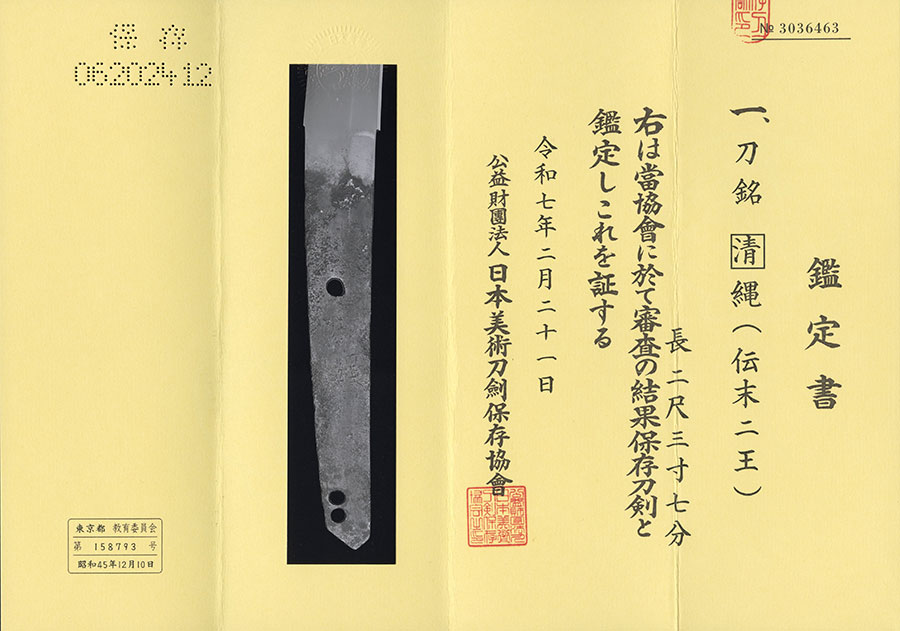 № 3036463
鑑定書
一、刀 銘 清縄（伝末二王）
長二尺三寸七分
右は當協會に於て審査の結果保存刀剣と
鑑定しこれを証する
令和七年二月二十一日
公益財團法人 日本美術刀劍保存協會
保存
06202412
東京都 教育委員会
第 158793 号
昭和45年12月10日